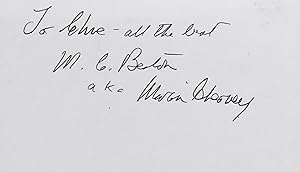 To Clive - all the best
M. C. Beaton
aka Marion Chesney